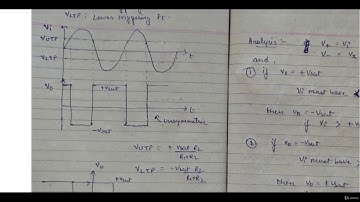 VLTP : Lower Triggering Pt.
Vi
VUTP
VLTP
t
Vo
+Vsat
t
-Vsat
Unsymmetric
VUTP = + Vsat R2
R1+R2
VLTP = -Vsat R2
R1+R2
Vo
+Vsat
Analysis :- V+ = Vi
V- = Va
and
① if vo = +Vsat
Vi must have
then vo = -Vsat
if Vi >
② if vo = -Vsat
Vi must have
then vo = +Vsat